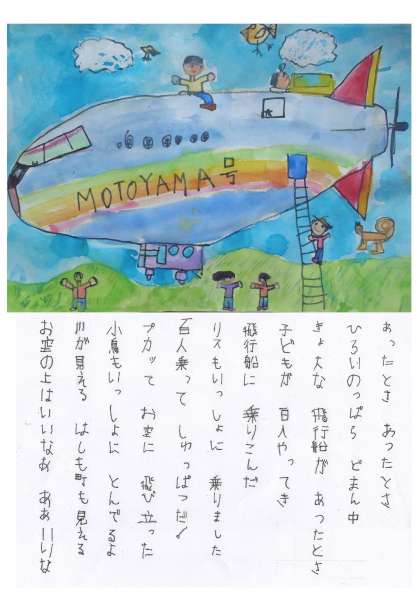 MOTOYAMA号
あったとさ あったとさ
ひろいのっぱら どまん中
きょ大な 飛行船が あったとさ
子どもが 百人やってき
飛行船に 乗りこんだ
リスもいっしょに 乗りました
百人乗って しゅっぱつだ!
プカッて お空に 飛び立った
小鳥もいっしょに とんでるよ
川が見える はしも町も見える
お空の上はいいなあ ああいいな